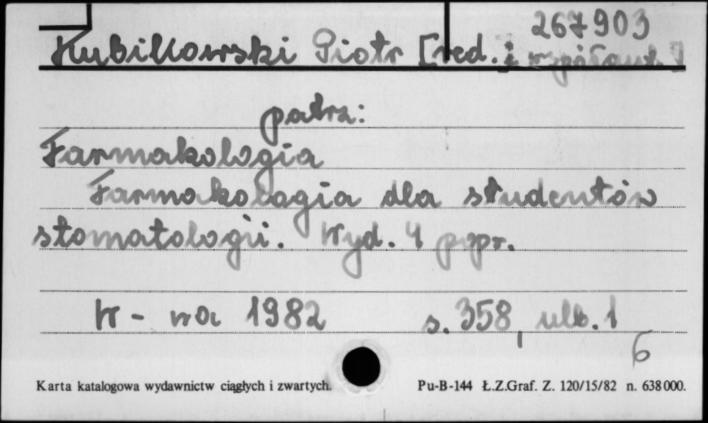 267903
Kubikowski Piotr [red. i współaut.]
patrz:
Farmakologia
Farmakologia dla studentów
stomatologii. Wyd. 4 popr.
W-wa 1982 s. 358, ulb. 1
6
Karta katalogowa wydawnictw ciągłych i zwartych. Pu-B-144 Ł.Z.Graf. Z. 120/15/82 n. 638000.